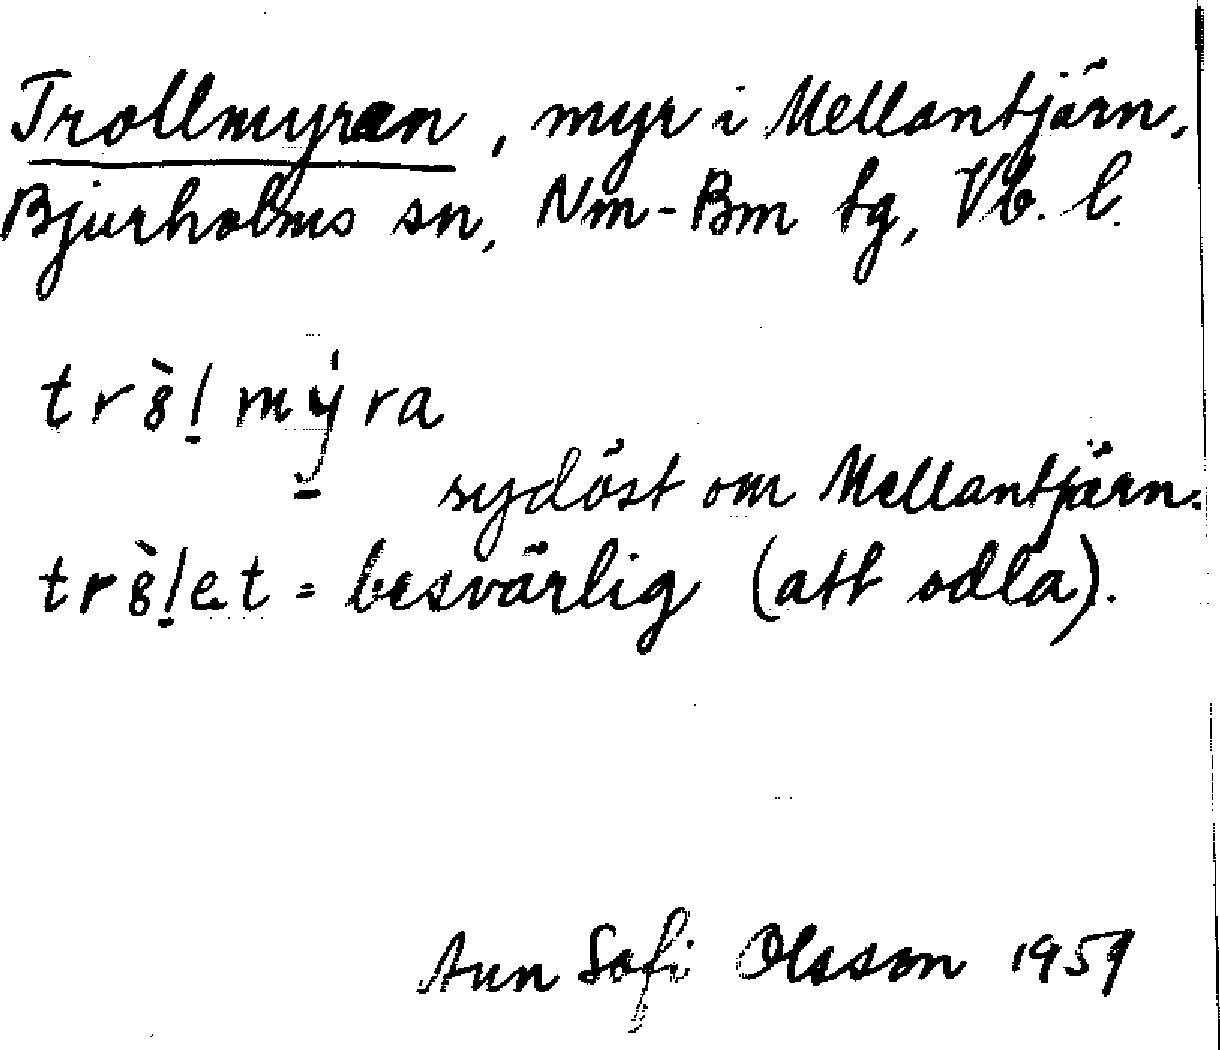 Trollmyran, myr i Mellantjärn,
Bjurholms sn, Nm-Bm tg, Vb. l.
tr8̀l̠mýra
sydöst om Mellantjärn.
tr8̀l̠et = besvärlig (att odla).
Ann Sofi Olsson 1959